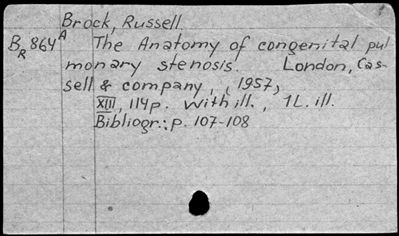 Brock, Russell
BR 864 A The Anatomy of congenital pul
monary stenosis. London, Cas-
sell & company, , 1957,
XIII, 114p. with ill., 1 L. ill.
Bibliogr.: p. 107-108